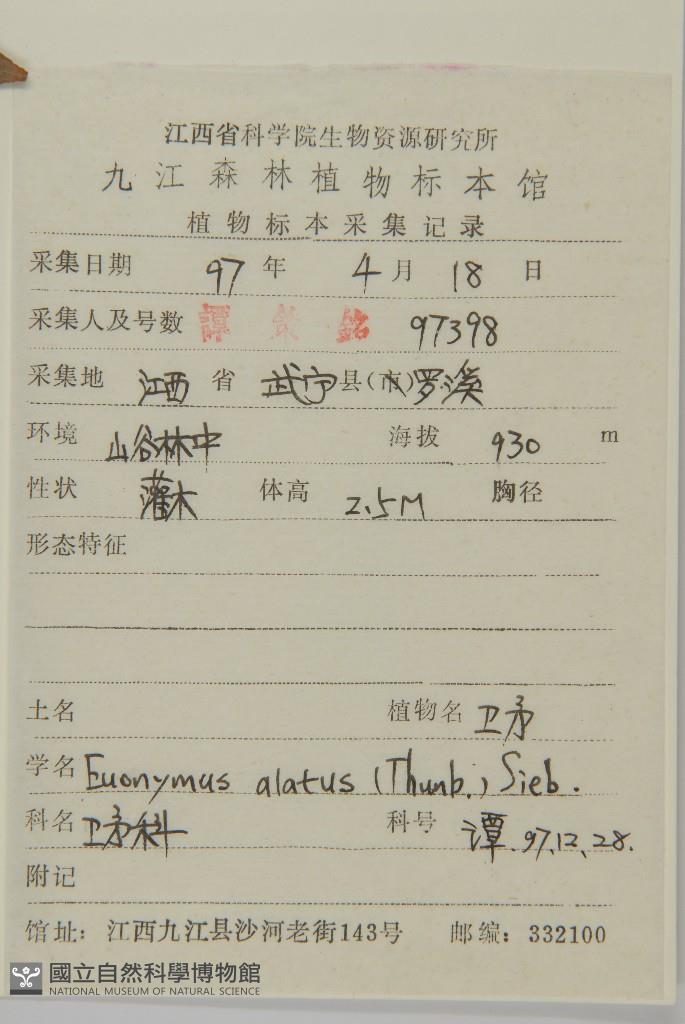 江西省科学院生物资源研究所
九江森林植物标本馆
植物标本采集记录
采集日期 97 年 4 月 18 日
采集人及号数 譚策銘 97398
采集地 江西 省 武宁 县(市) 罗溪
环境 山谷林中 海拔 930 m
性状 灌木 体高 2.5M 胸径
形态特征
土名 植物名 卫矛
学名 Euonymus alatus (Thunb.) Sieb.
科名 卫矛科 科号 譚.97.12.28.
附记
馆址：江西九江县沙河老街143号 邮编：332100
國立自然科學博物館
NATIONAL MUSEUM OF NATURAL SCIENCE